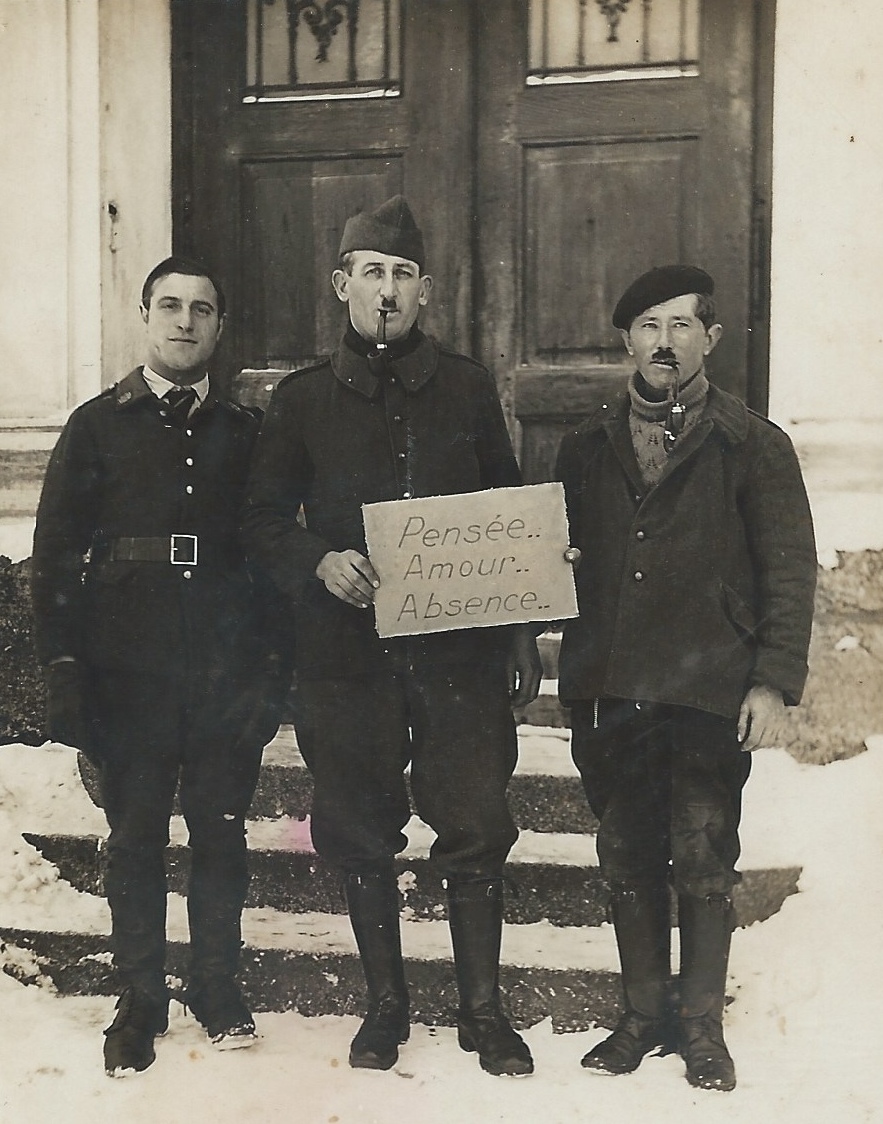 Pensée..
Amour..
Absence..